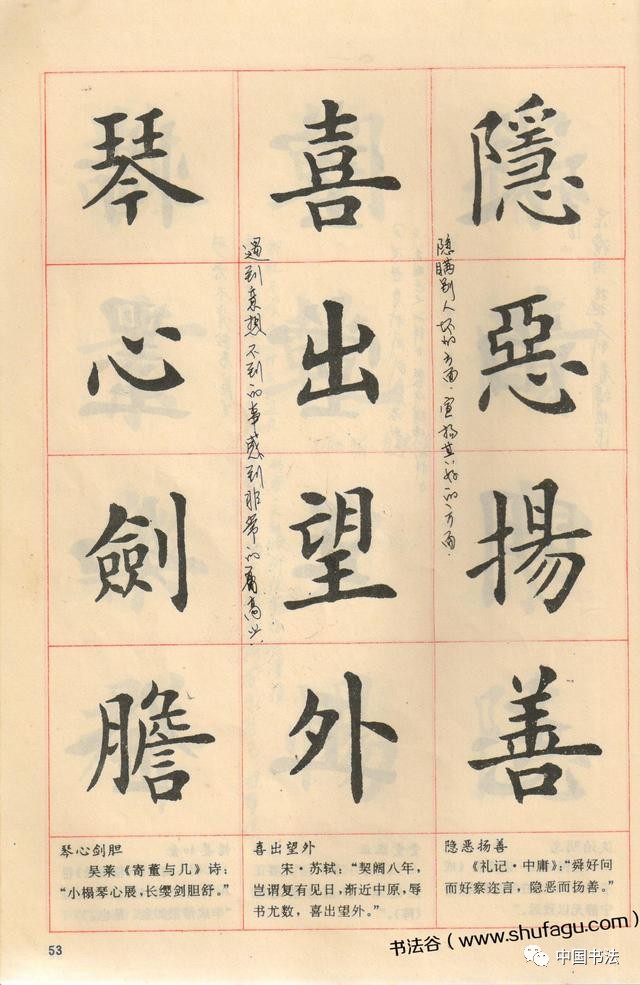 隱惡揚善
隐瞒别人坏的方面·宣扬其好的方面·
喜出望外
遇到意想不到的事感到非常的高兴
琴心劍膽
隐恶扬善
《礼记·中庸》：“舜好问
而好察迩言，隐恶而扬善。”
喜出望外
宋·苏轼：“契阔八年，
岂谓复有见日，渐近中原，辱
书尤数，喜出望外。”
琴心剑胆
吴莱《寄董与几》诗：
“小榻琴心展，长缨剑胆舒。”
53
书法谷（www.shufagu.com）
中国书法